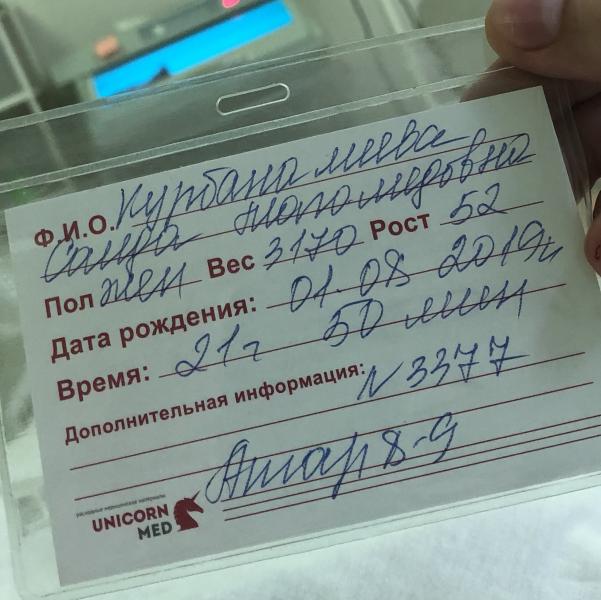 Ф.И.О. Курбаналиева
Саида Магомедовна
Пол жен Вес 3170 Рост 52
Дата рождения: 01.08 2019г
Время: 21г 50 мин
Дополнительная информация: N 3377
Апгар 8-9
расходные медицинские материалы
UNICORN
MED